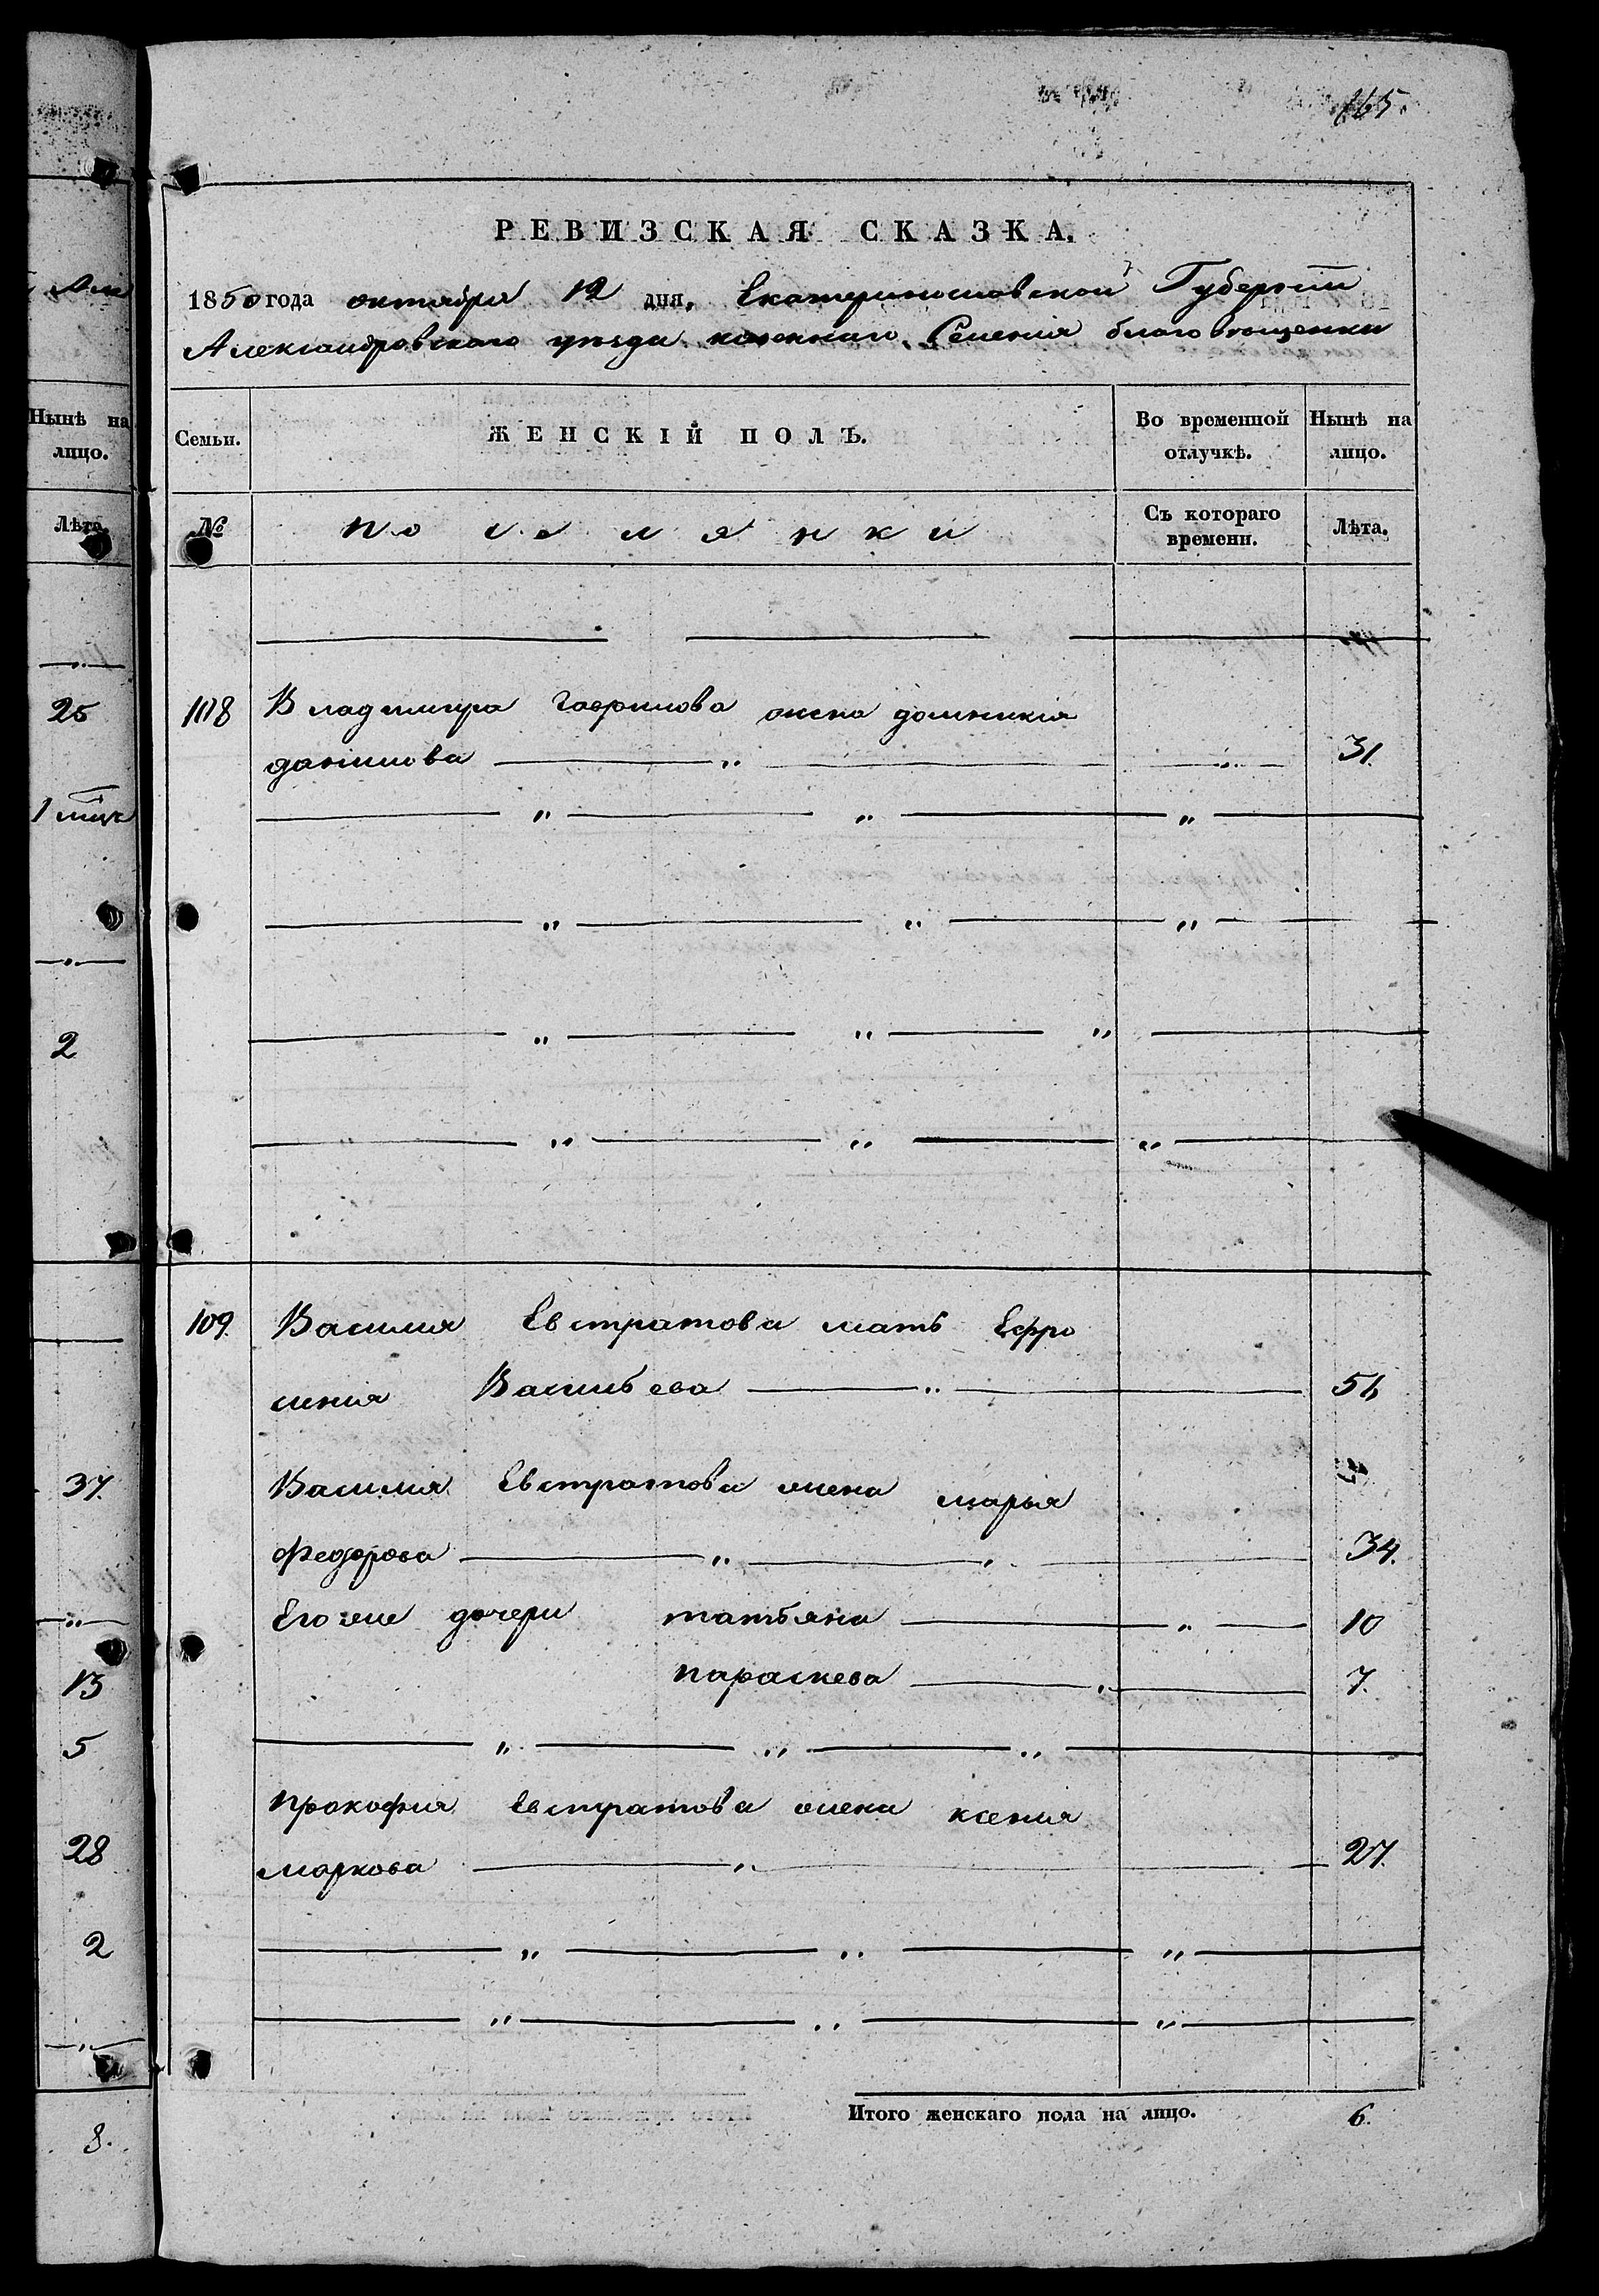 165.
РЕВИЗСКАЯ СКАЗКА.
1850 года октября 12 дня, Екатеринославской Губернии
Александровского уѣзда казеннаго Селенія благовѣщенки
Нынѣ на лицо.
Лѣта.
25
1
2
37.
13
5
28
2
8.
Семьи. ЖЕНСКІЙ ПОЛЪ. Во временной отлучкѣ. Нынѣ на лицо.
№ поселянки Съ котораго времени. Лѣта.
108 Владимира Гаврилова жена домникия
данилова 31.
109. Василия Евстратова мать Ефро
синия Васильева 56
Василия Евстратова жена марья
Федорова 34.
Его же дочери татьяна 10
параскева 7.
прокофия Евстратова жена ксения
маркова 27.
Итого женскаго пола на лицо. 6.